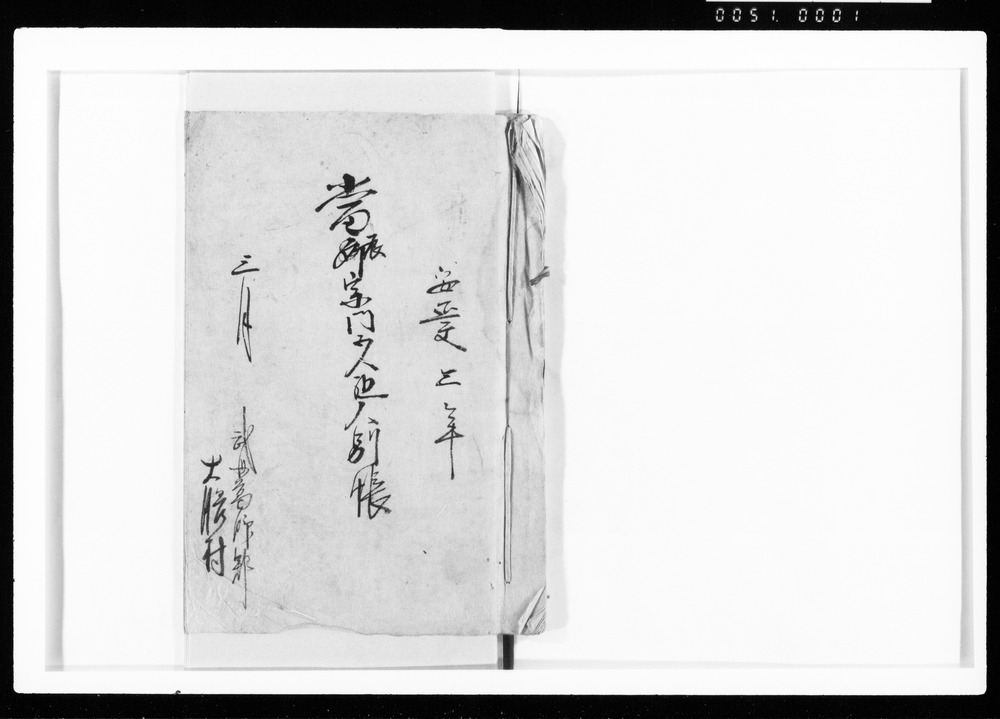 安政三年
當辰宗門五人組人別帳
三月
武州葛飾郡
大膳村
0051.0001